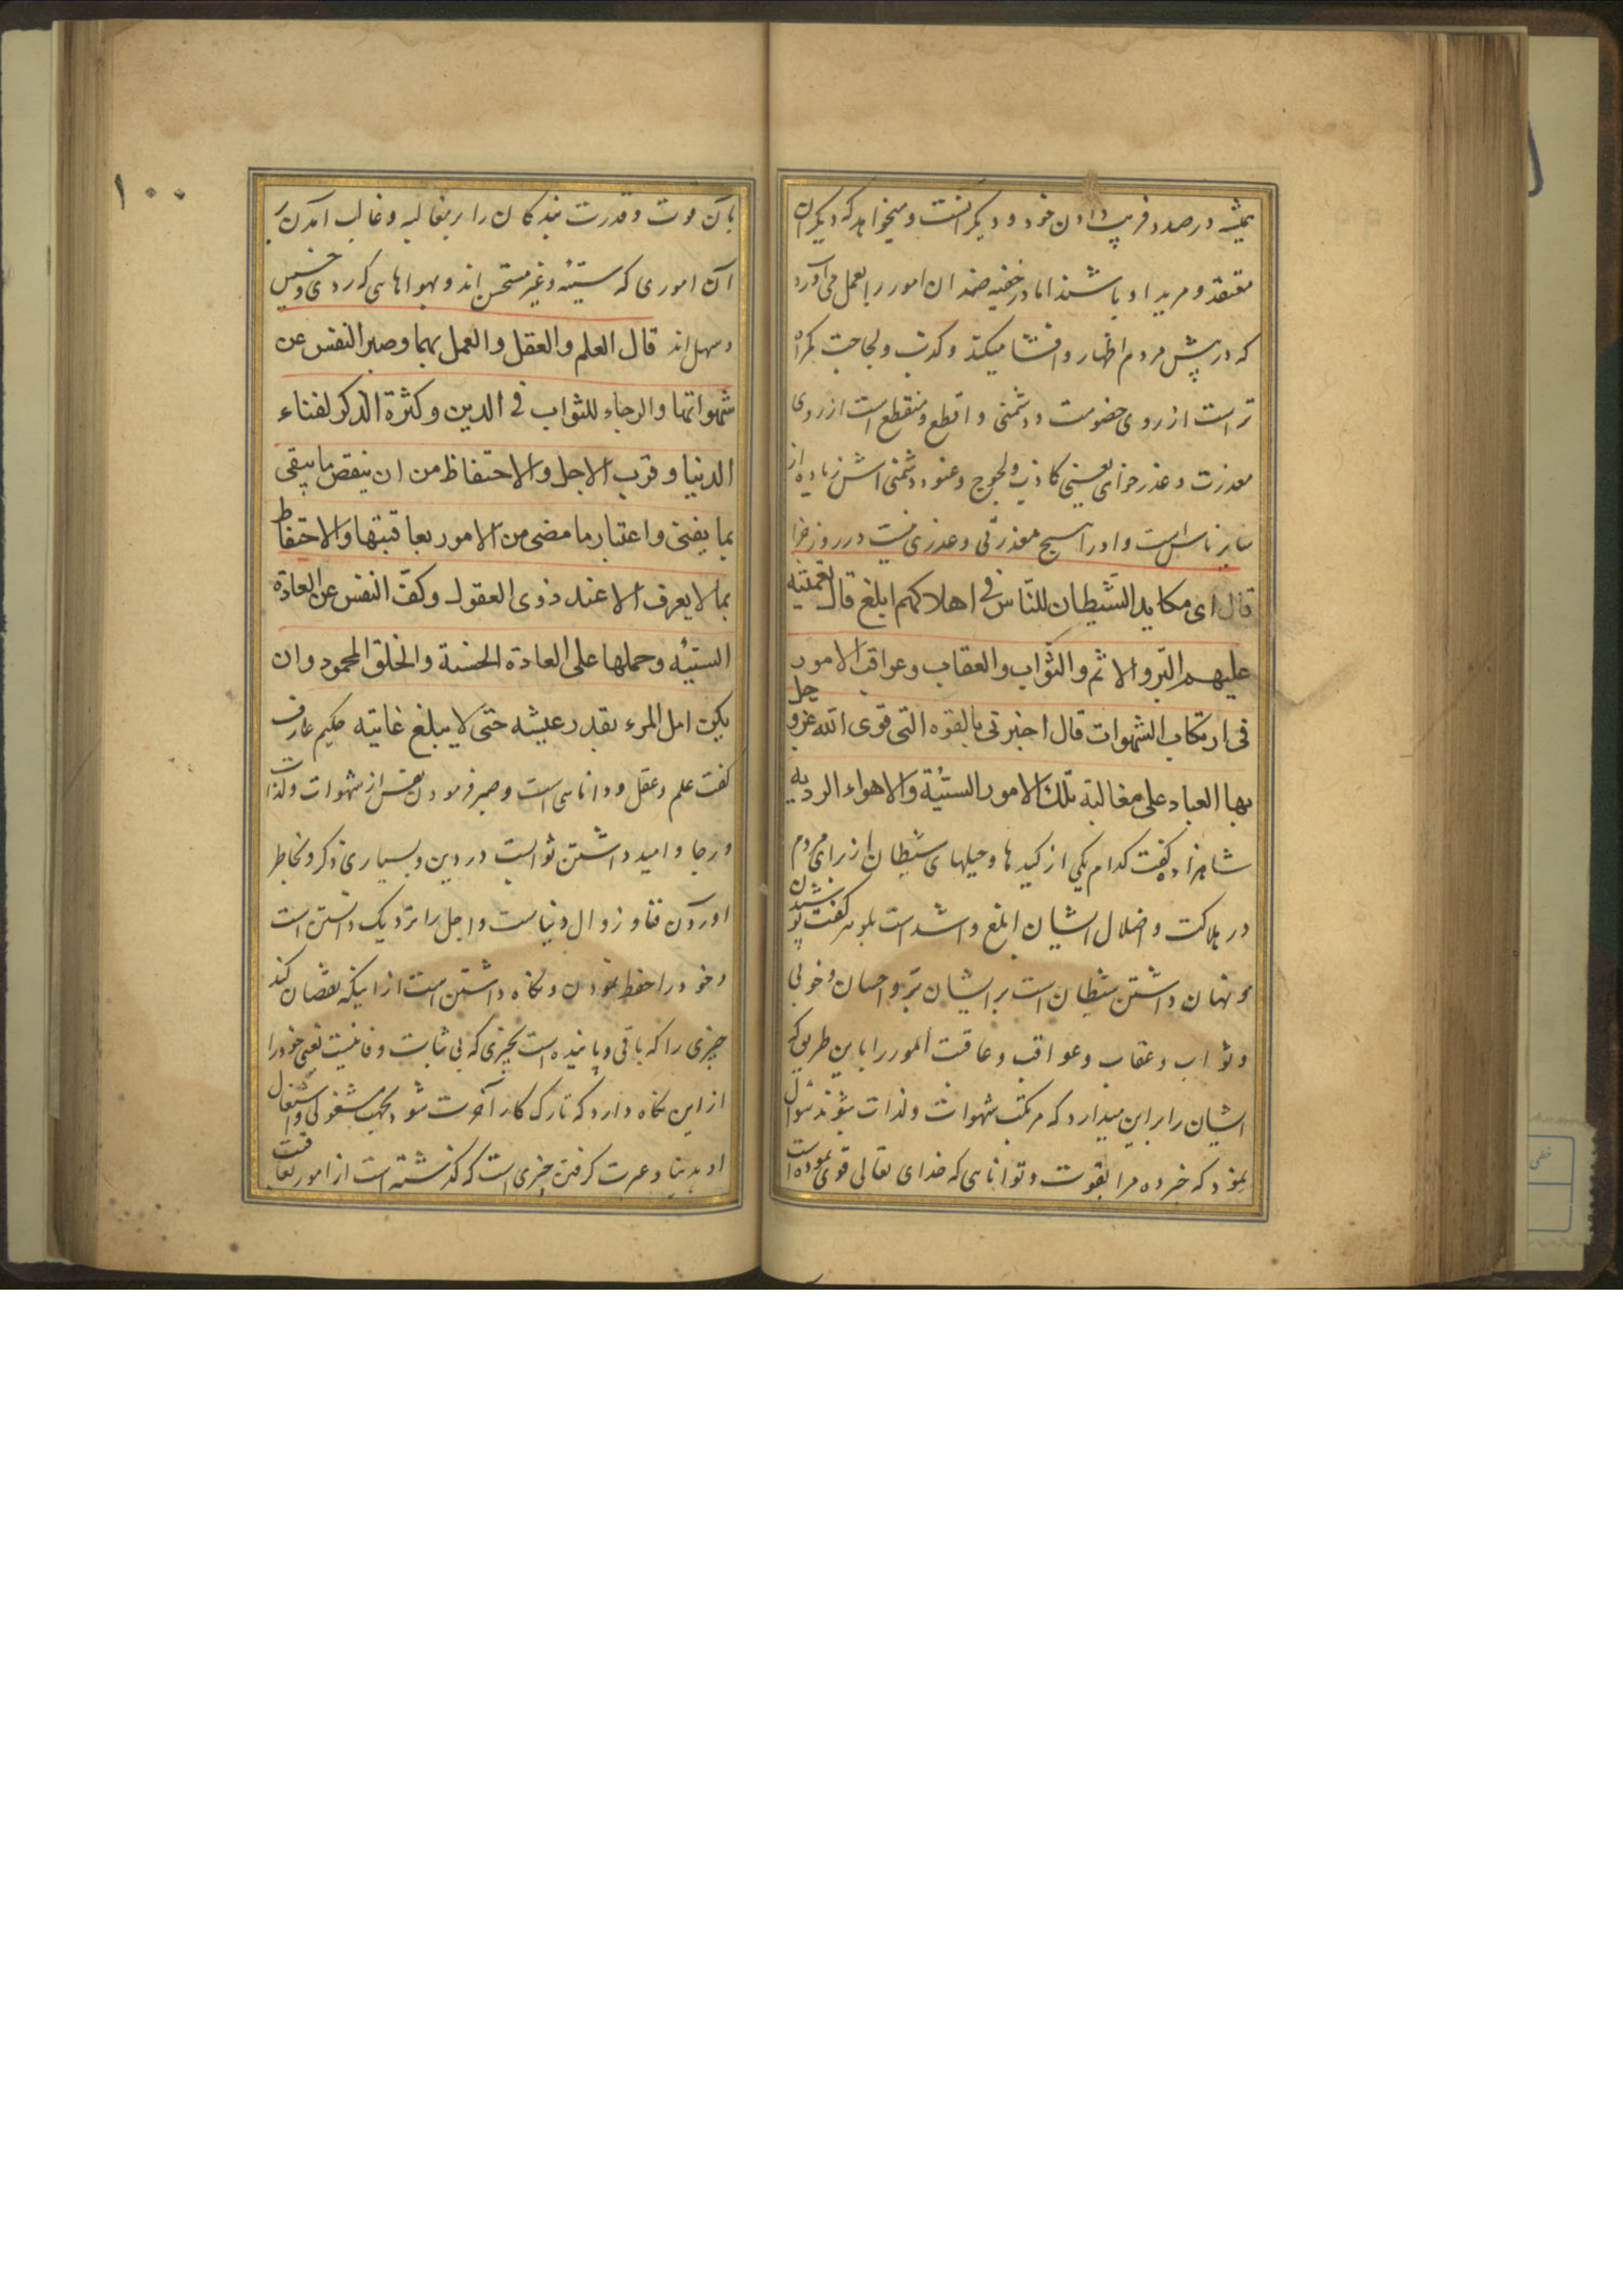 همیشه در صدد فریب دادن خود و دیگر انست و میخواهد که دیگران
معتقد و مرید او باشند اما در خفیه ضد ان امور را بعمل می آورد
که در پیش مردم اظهار و افشا میکند و کذب و لجاجت گمراه
تر است از روی خصومت و دشمنی و اقطع و منقطع است از روی
معذرت و عذر خواهی یعنی کاذب و لجوج و عنود دشمنی اش زیاده از
سایر ناس است و او را هیچ معذرتی و عذری نیست در روز جزا
قال ای مکاید الشیطان للناس فی اهلاکهم ابلغ قال تعمیته
علیهم البر والاثم والثواب والعقاب وعواقب الامور
فی ارتکاب الشهوات قال اخبرنی بالقوه التی قوی الله عزو جل
بها العباد علی مغالبة تلک الامور السیئة والاهواء الردیه
شاهزاده گفت کدام یکی از کیدها و حیلهای شیطان از برای مردم
در هلاکت و اضلال ایشان ابلغ و اشد است بلوهر گفت پوشیدن
و نهان داشتن شیطان است بر ایشان بر و احسان و خوبی
و ثواب و عقاب و عواقب و عاقبت امور را باین طریق که
ایشان را بر این میدارد که مرتکب شهوات و لذات شوند سوال
نمود که خبر ده مرا بقوت و توانایی که خدای تعالی قوی نموده است
۱۰۰
بآن قوت و قدرت بندگان را بر مغالبه و غالب آمدن بر
آن اموری که سیئه و غیر مستحسن اند و بهواهایی که ردی و خسیس
و سهل اند قال العلم والعقل والعمل بهما وصبر النفس عن
شهواتها والرجاء للثواب فی الدین وکثرة الذکر لفناء
الدنیا وقرب الاجل والاحتفاظ من ان ینقص ما یبقی
بما یفنی واعتبار ما مضی من الامور بعاقبتها والاحتفاظ
بما لا یعرف الا عند ذوی العقول وکف النفس عن العادة
السیئه وحملها علی العادة الحسنة والخلق المحمود وان
یکون امل المرء بقدر عیشه حتی لا یبلغ غایته حکیم عارف
گفت علم و عقل و دانایی است و صبر فرمودن نفس از شهوات و لذات
و رجا و امید داشتن ثوابست در دین و بسیاری ذکر و بخاطر
اوردن فنا و زوال دنیاست و اجل را نزدیک دانستن است
و خود را حفظ نمودن و نگاه داشتن است از اینکه نقصان کند
چیزی را که باقی و پاینده است بچیزی که بی ثبات و فانیست یعنی خود را
از این نگاه دارد که تارک کار آخرت شود بجهت مشغولی و اشتغال
او بدنیا و عبرت گرفتن چیزی است که گذشته است از امور بعاقبت